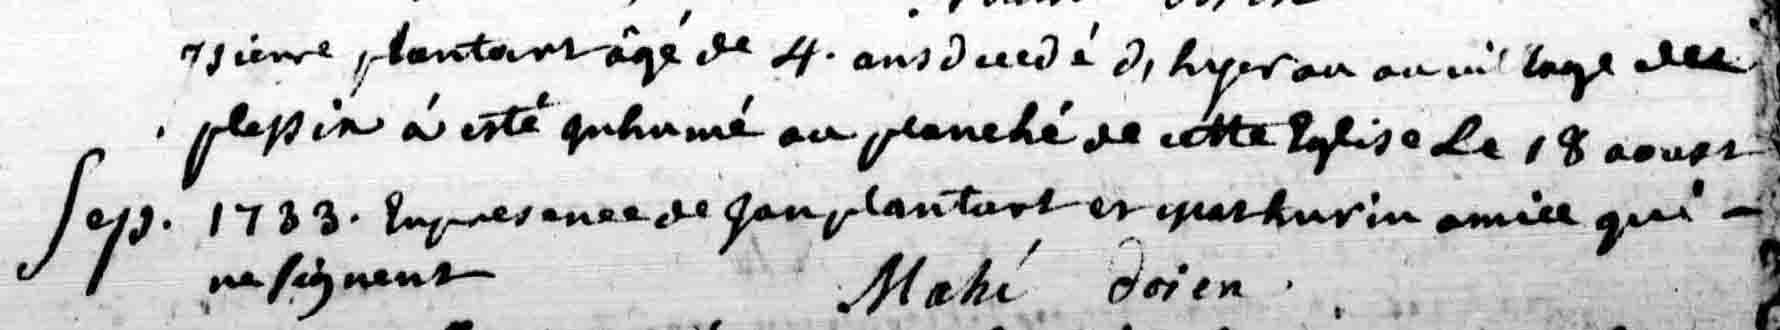 pierre plantart âgé de 4. ans decedé d'hyer au au village des
plessix á esté Inhumé au planché de cette Eglise Le 18 aoust
Sep. 1733. En presence de Jan plantart et mathurin amice qui -
ne signent Mahé doien.